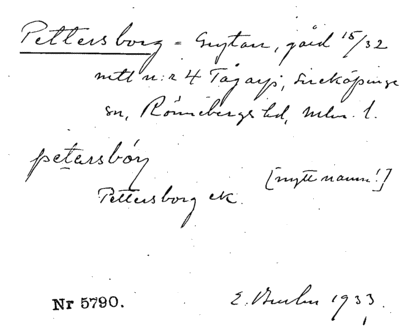 Pettersborg = Grytan, gård 15/32
mtl n:r 4 Tågarp, Sireköpinge
sn, Rönnebergs hd, Mlm. l.
petersbory
[nytt namn!]
Pettersborg ek.
Nr 5790. 1933